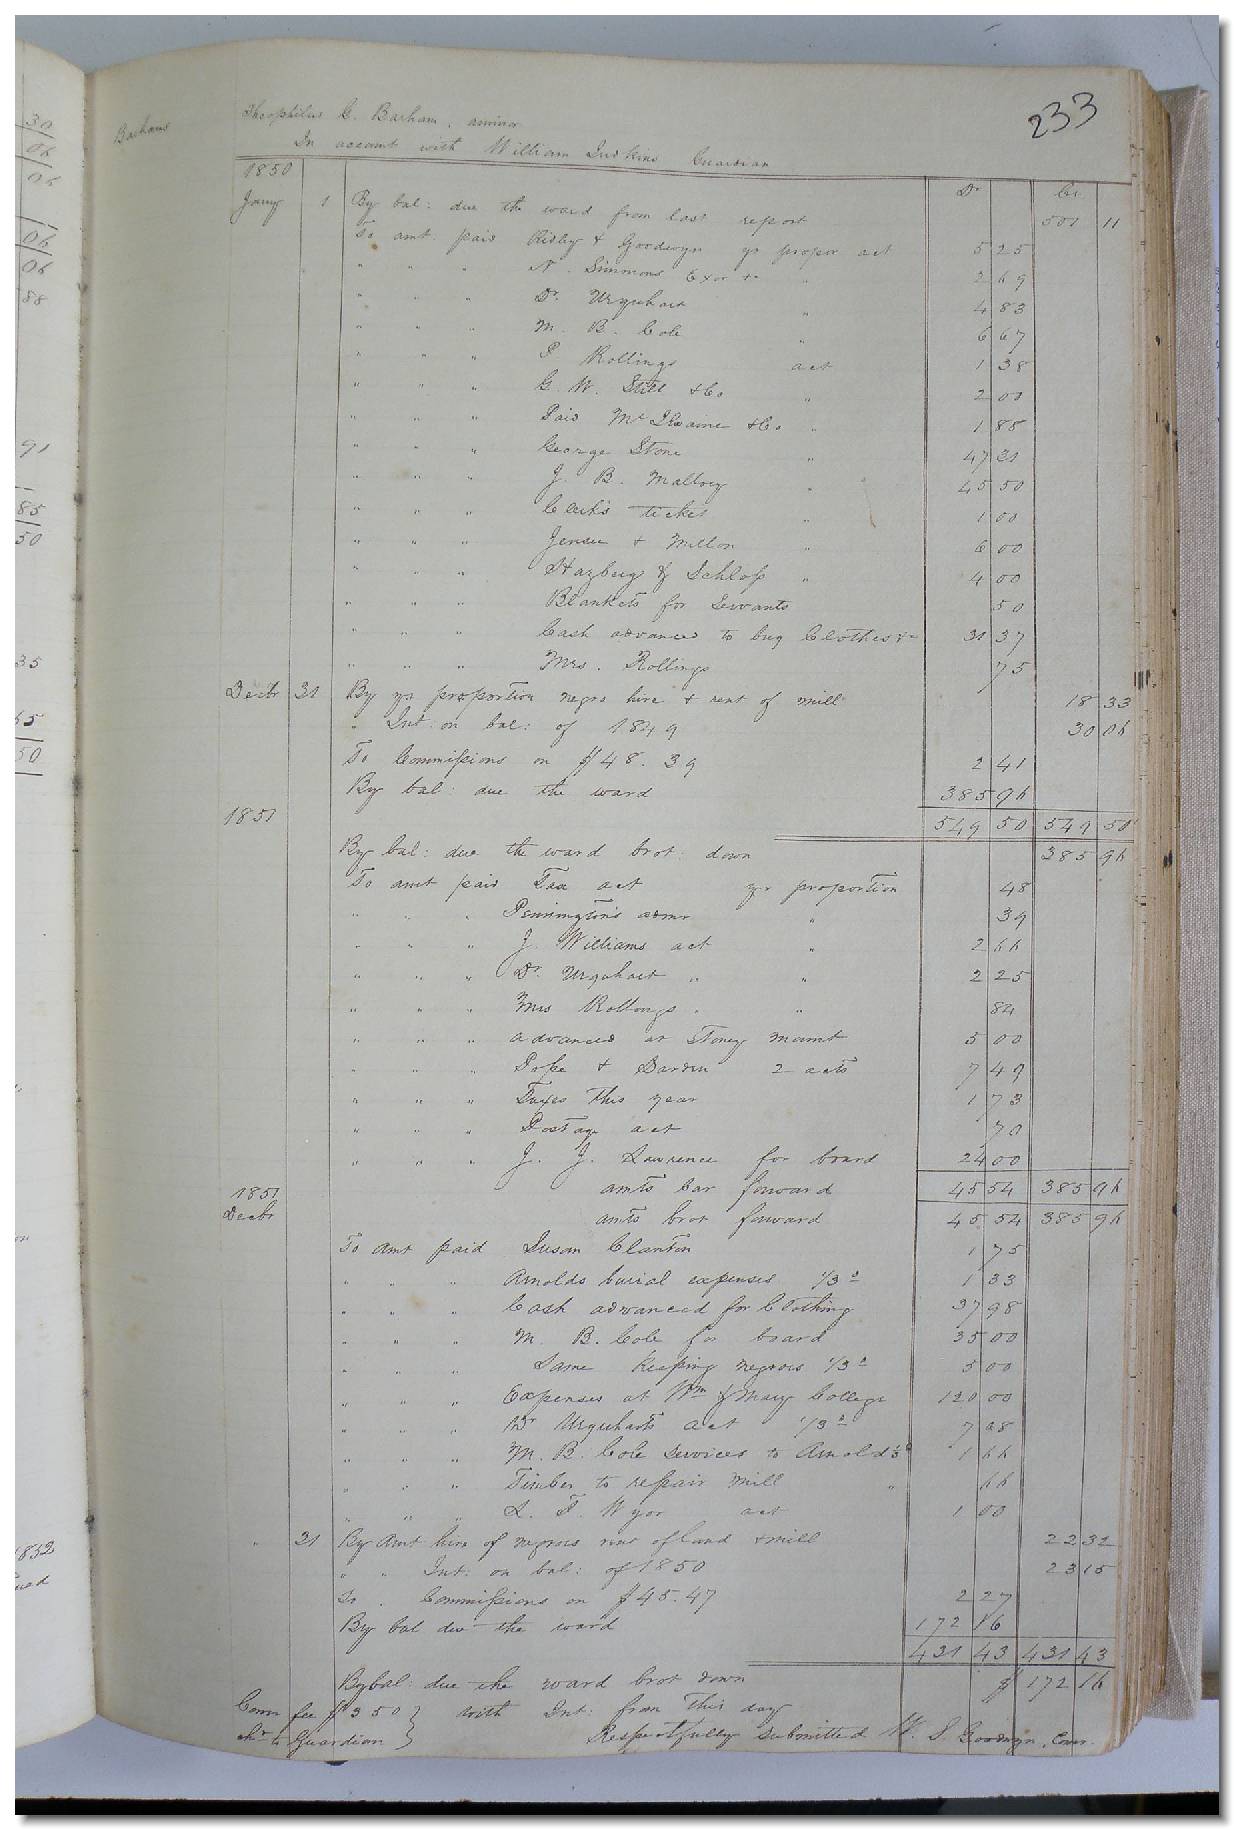 233
Barhams
Theophilus C. Barham, a minor
In account with William Judkins Guardian
1850 Dr Cr
Jany 1 By bal: due the ward from last report 501 11
To amt. paid Ridley & Goodwyn yr propor act 5 25
" " " N. Simmons Exor &c " 2 69
" " " Dr. Urquhart " 4 83
" " " M. B. Cole " 6 67
" " " P Rollings act 1 38
" " " G. W. Still & Co " 2 00
" " " Paid McIlwaine & Co " 1 85
" " " George Stone " 47 21
" " " J. B. Mallory " 45 50
" " " Clerk's ticket " 1 00
" " " & " 6 00
" " " & Schloss " 4 00
" " " Blankets for Servants 50
" " " Cash advanced to buy Clothes &c 31 37
" " " Mrs. Rollings 75
Decbr 31 By yr proportion negro hire & rent of mill 18 33
" Int: on bal: of 1849 30 06
To Commissions on $48.39 2 41
By bal: due the ward 385 96
549 50 549 50
1851
By bal: due the ward brot: down 385 96
To amt paid Tax act yr proportion 48
" " " Pennington's admr " 39
" " " J. Williams act " 2 66
" " " Dr. Urquhart " " 2 25
" " " Mrs Rollings " " 84
" " " advanced at Stoney mount 5 00
" " " Pope & Darden 2 acts 7 49
" " " Taxes this year 1 73
" " " Postage act 70
" " " J. J. Lawrence for board 24 00
amts car forward 45 54 385 96
1851
Decbr amts brot forward 45 54 385 96
To amt paid Susan Clanton 1 75
" " " Arnolds burial expenses 1/3d 1 33
" " " Cash advanced for Clothing 37 98
" " " M. B. Cole for board 35 00
" " " Same keeping negroes 1/3d 5 00
" " " Expenses at Wm & Mary College 120 00
" " " Dr Urquharts act 1/3d 7 28
" " " M. B. Cole services to Arnold 1/3d 1 66
" " " Timber to repair mill " 66
" " " L. T. act 1 00
" 31 By amt hire of negroes rent of land & mill 22 32
" " Int: on bal: of 1850 23 15
To " Commissions on $45.47 2 27
By bal due the ward 172 16
431 43 431 43
By bal: due the ward brot down $ 172 16
Comr fee $3 50 } with Int: from this day
chd to Guardian } Respectfully submitted W. S. Goodwyn, Comr.
30
06
06
06
06
88
91
85
50
35
65
50
1852